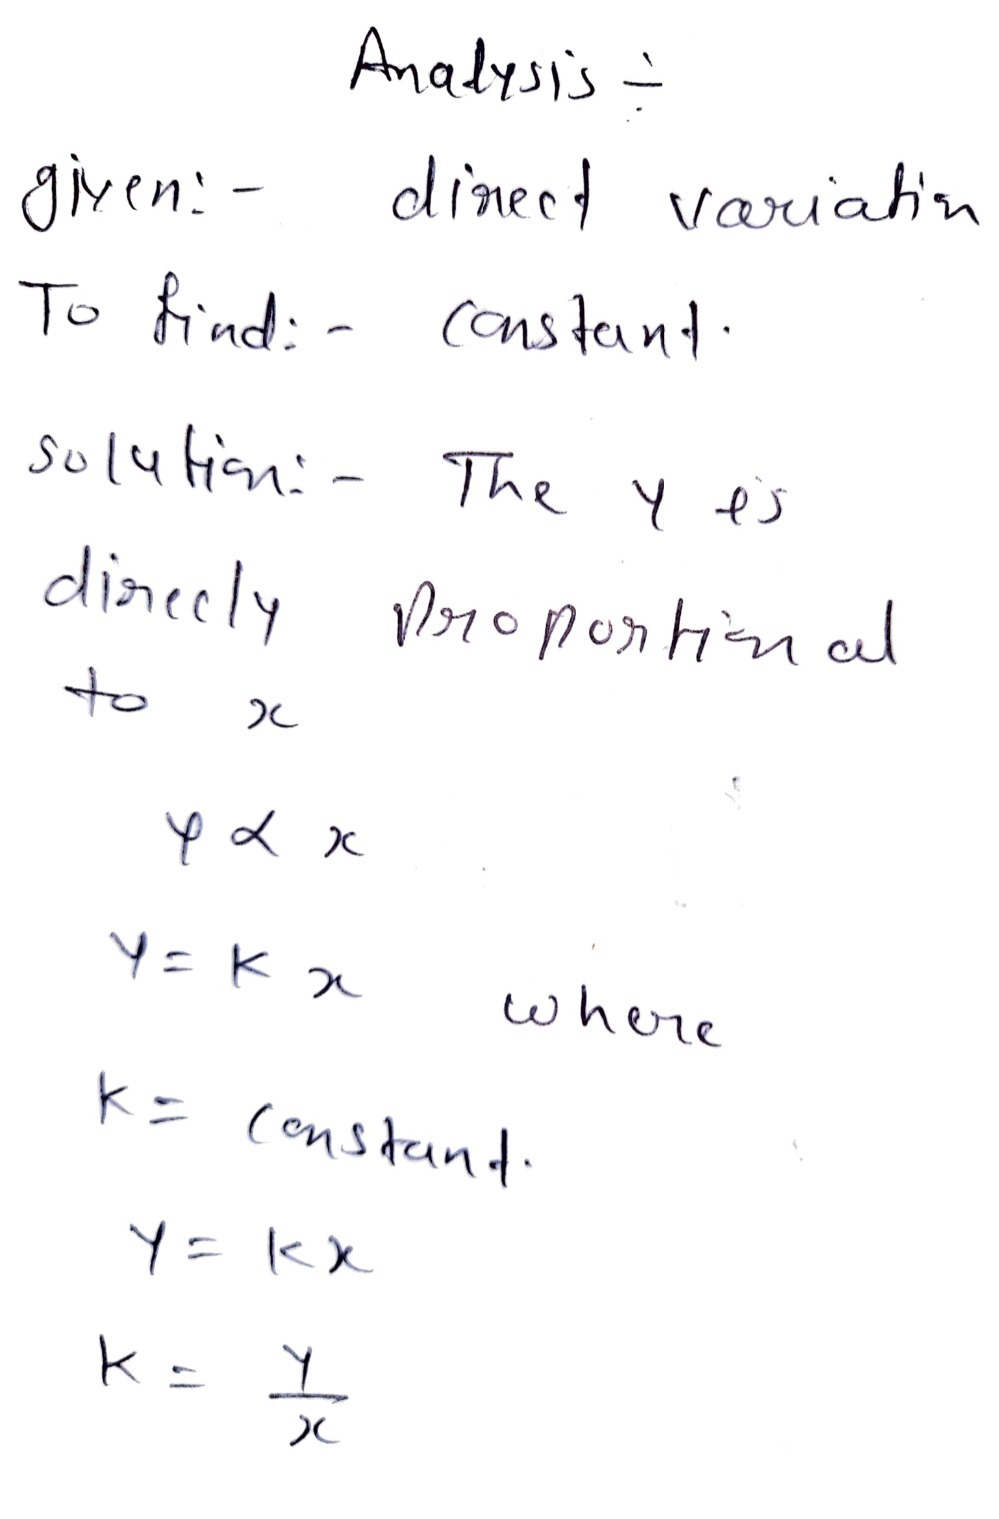 Analysis :-
given:- direct variation
To find:- constant.
solution:- The y is
direcly proportional
to x
y ∝ x
y = k x where
k = constant.
y = kx
k = y/x